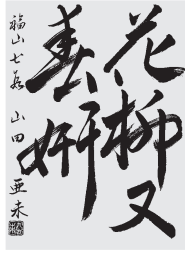 花柳又
春妍
福山七段 山田亜未